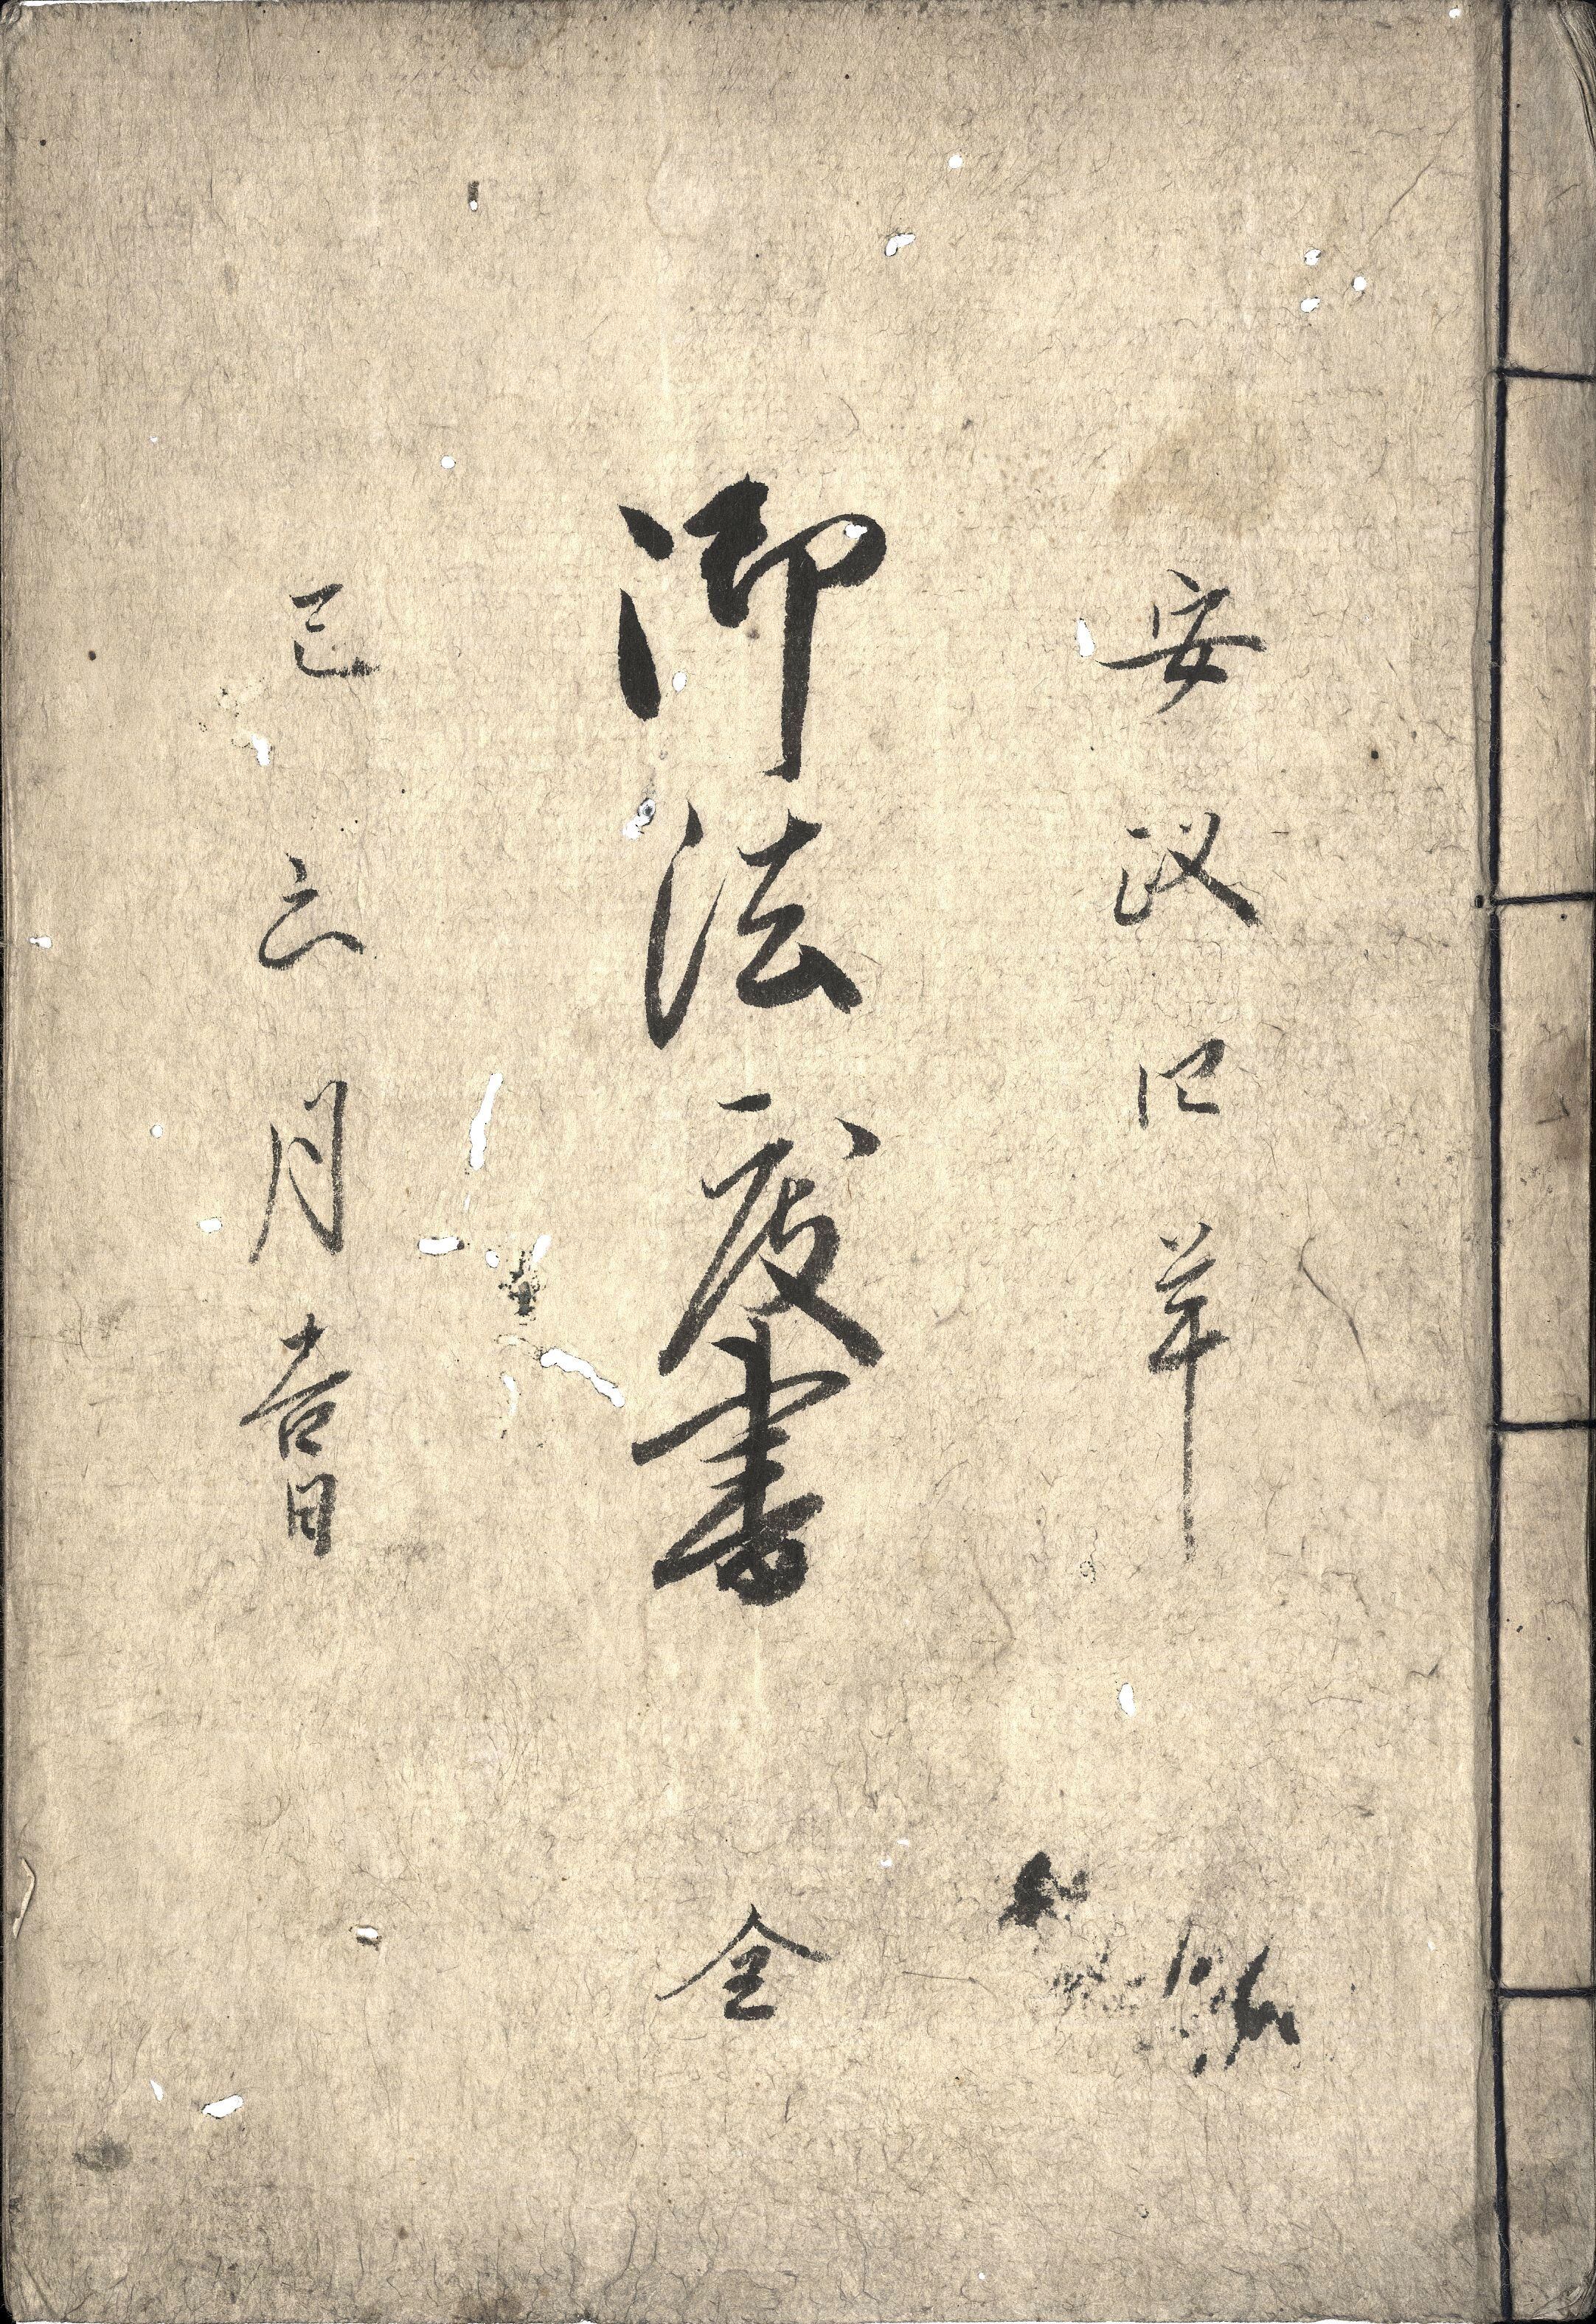 安政四年
御法度書 全
巳六月吉日